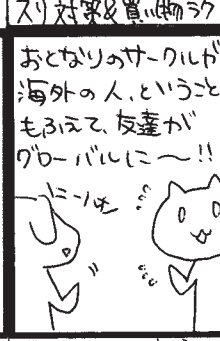 スリ対策&買い物ラク
おとなりのサークルが
海外の人、ということ
もふえて、友達が
グローバルに〜!!